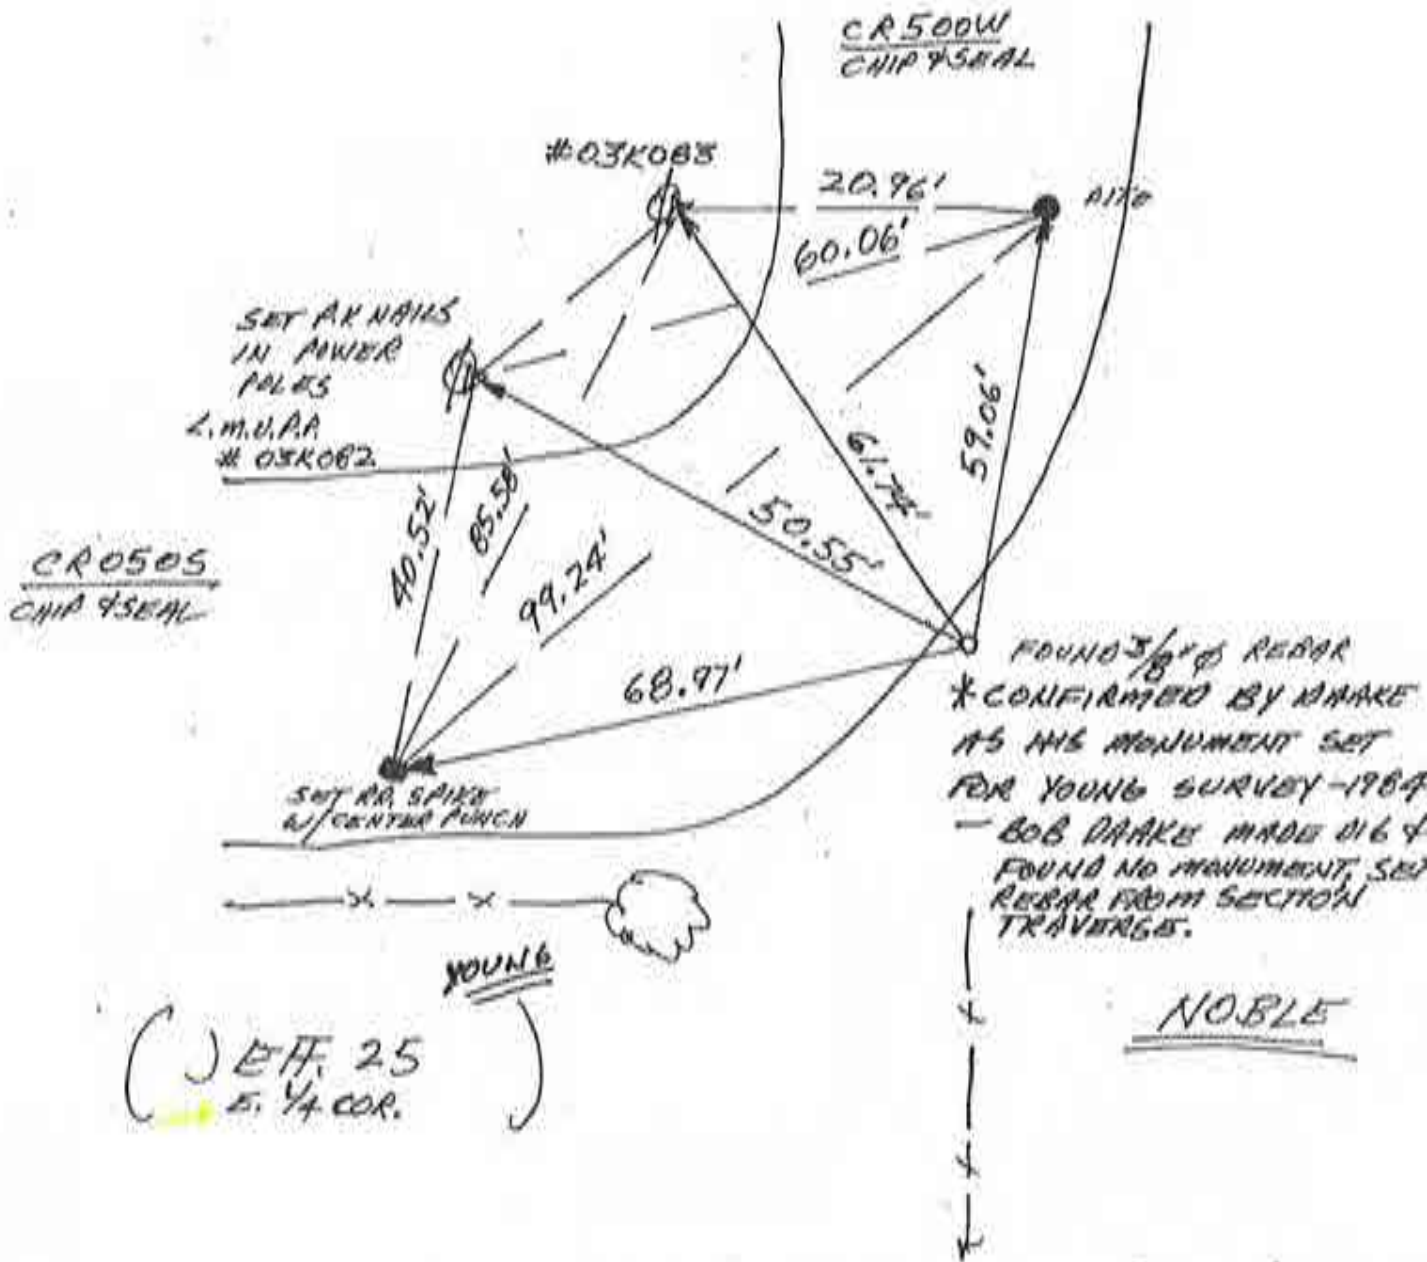 CR500W
CHIP & SEAL
#03K083
20.96'
60.06'
SET P.K NAILS
IN POWER
POLES
L.M.U.P.P.
# 03K082
59.06'
61.74'
50.55'
40.52'
85.58'
99.24'
CR050S
CHIP & SEAL
68.97'
SET R.R. SPIKE
W/ CENTER PUNCH
FOUND 3/8"φ REBAR
* CONFIRMED BY DRAKE
AS HIS MONUMENT SET
FOR YOUNG SURVEY - 1984
- BOB DRAKE MADE DIG &
FOUND NO MONUMENT, SET
REBAR FROM SECTION
TRAVERSE.
YOUNG
NOBLE
25
E. 1/4 COR.